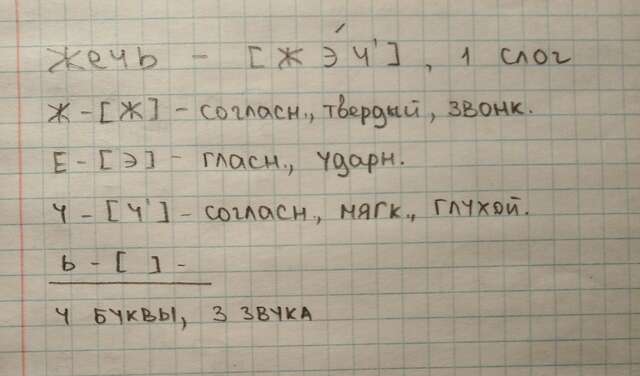 жечь - [ж э́ ч'], 1 слог
ж - [ж] - согласн., твердый, звонк.
Е - [э] - гласн., ударн.
ч - [ч'] - согласн., мягк., глухой.
ь - [ ] -
4 буквы, 3 звука